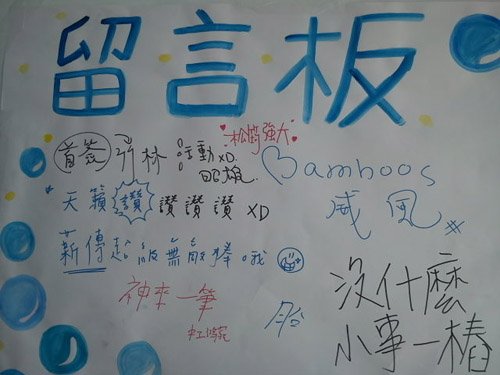 留言板
松崗強大
首簽 竹林 活動XD
Bamboos
天籟讚 讚讚讚 XD
威風
薪傳 超級無敵棒哦
神來一筆
沒什麼
小事一樁